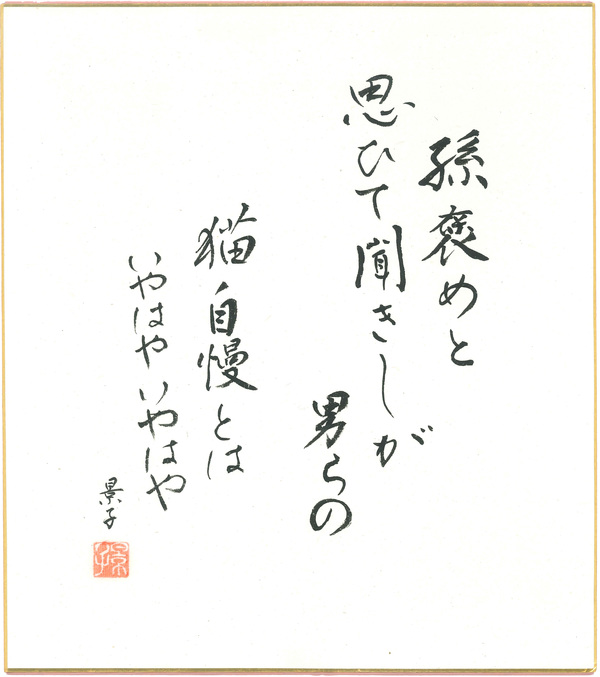 孫褒めと
思ひて聞きしが
男らの
猫自慢とは
いやはやいやはや
景子